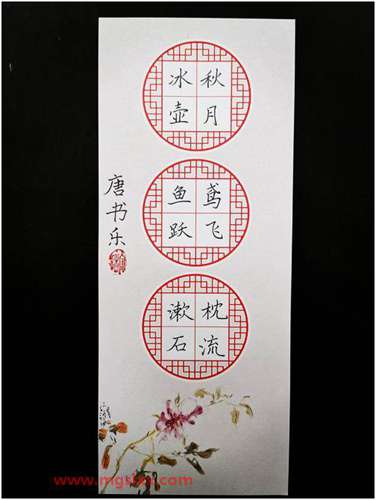 秋月
冰壶
鸢飞
鱼跃
枕流
漱石
唐书乐